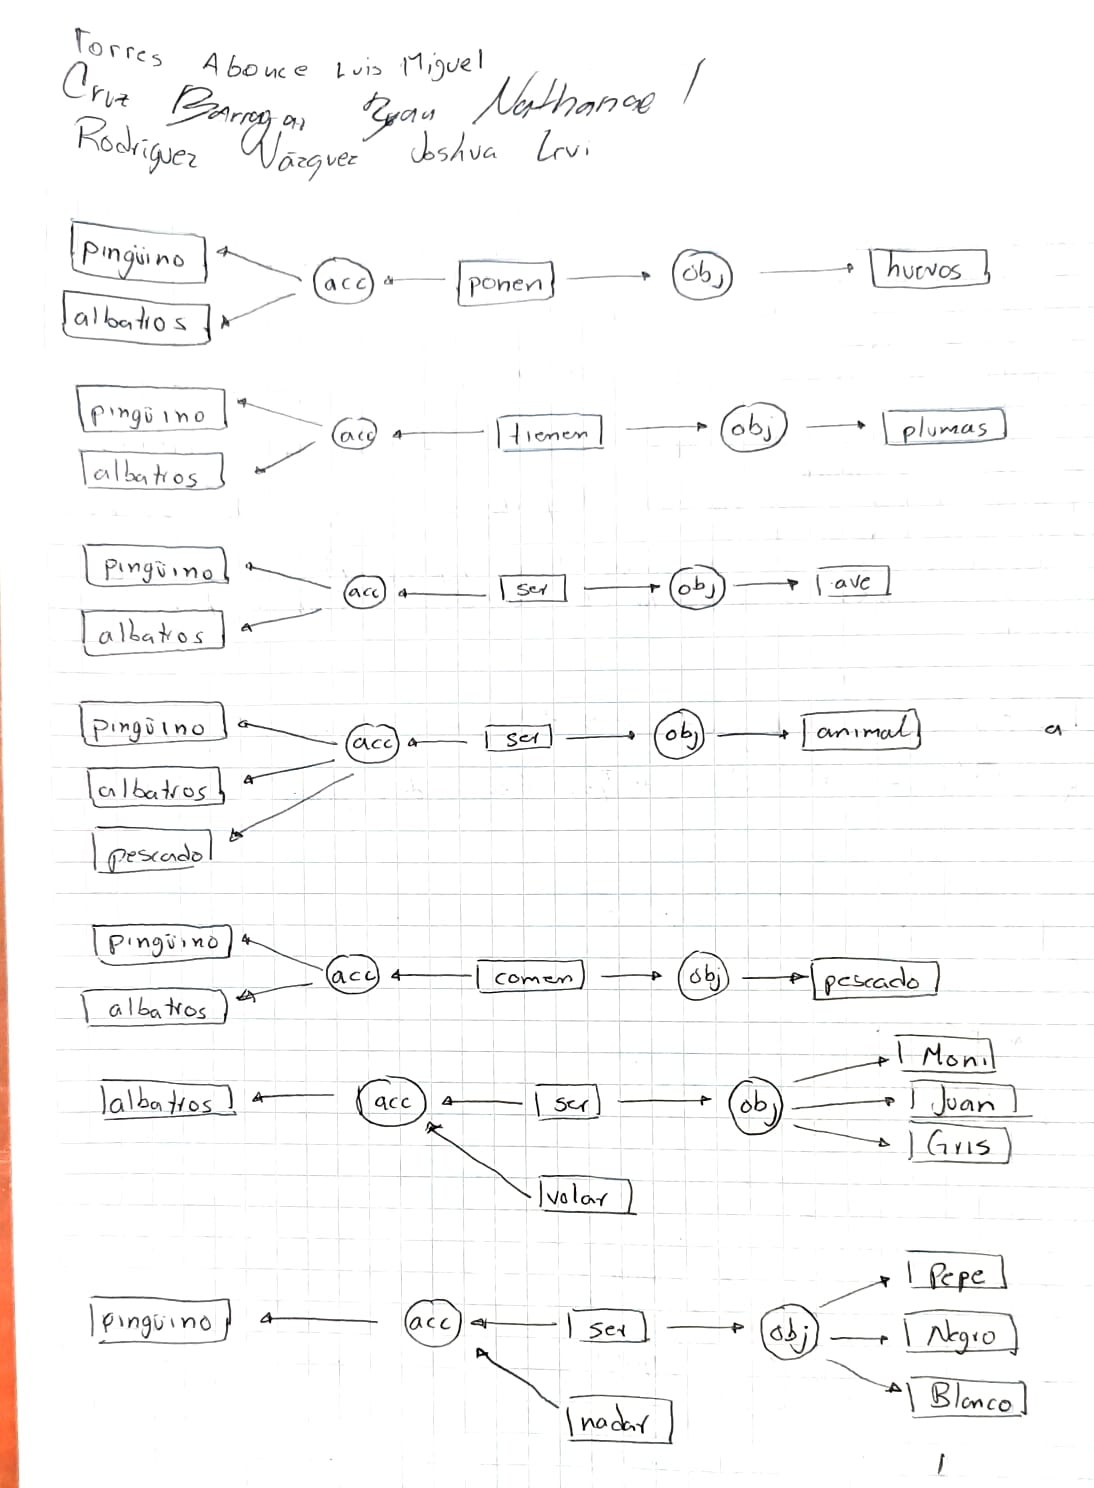 Torres Abonce Luis Miguel
Cruz Barragan Ryan Nathanael
Rodríguez Vázquez Joshua Irvi
pingüino
albatros
acc
ponen
obj
huevos
pingüino
albatros
acc
tienen
obj
plumas
pingüino
albatros
acc
ser
obj
ave
pingüino
albatros
pescado
acc
ser
obj
animal
a
pingüino
albatros
acc
comen
obj
pescado
albatros
acc
ser
volar
obj
Moni
Juan
Gris
pingüino
acc
ser
nadar
obj
Pepe
Negro
Blanco
1